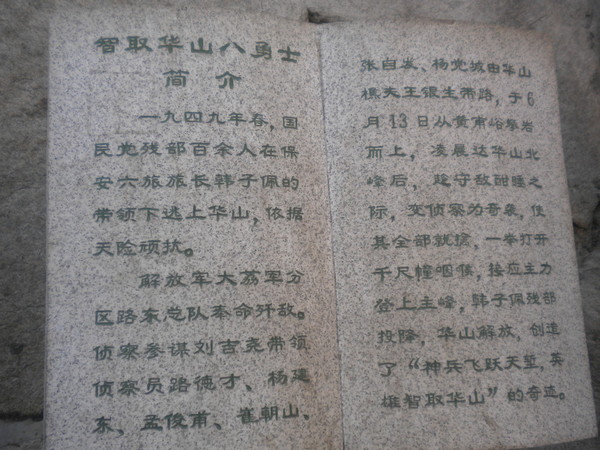 智取华山八勇士
简介
一九四九年春，国
民党残部百余人在保
安六旅旅长韩子佩的
带领下逃上华山，依据
天险顽抗。
解放军大荔军分
区路东总队奉命歼敌。
侦察参谋刘吉尧带领
侦察员路德才、杨建
东、孟俊甫、崔朝山、
张自发、杨党城由华山
樵夫王银生带路，于6
月13日从黄甫峪攀岩
而上，凌晨达华山北
峰后，趁守敌酣睡之
际，变侦察为奇袭，使
其全部就擒，一举打开
千尺幢咽喉，接应主力
登上主峰，韩子佩残部
投降，华山解放，创造
了“神兵飞跃天堑，英
雄智取华山”的奇迹。